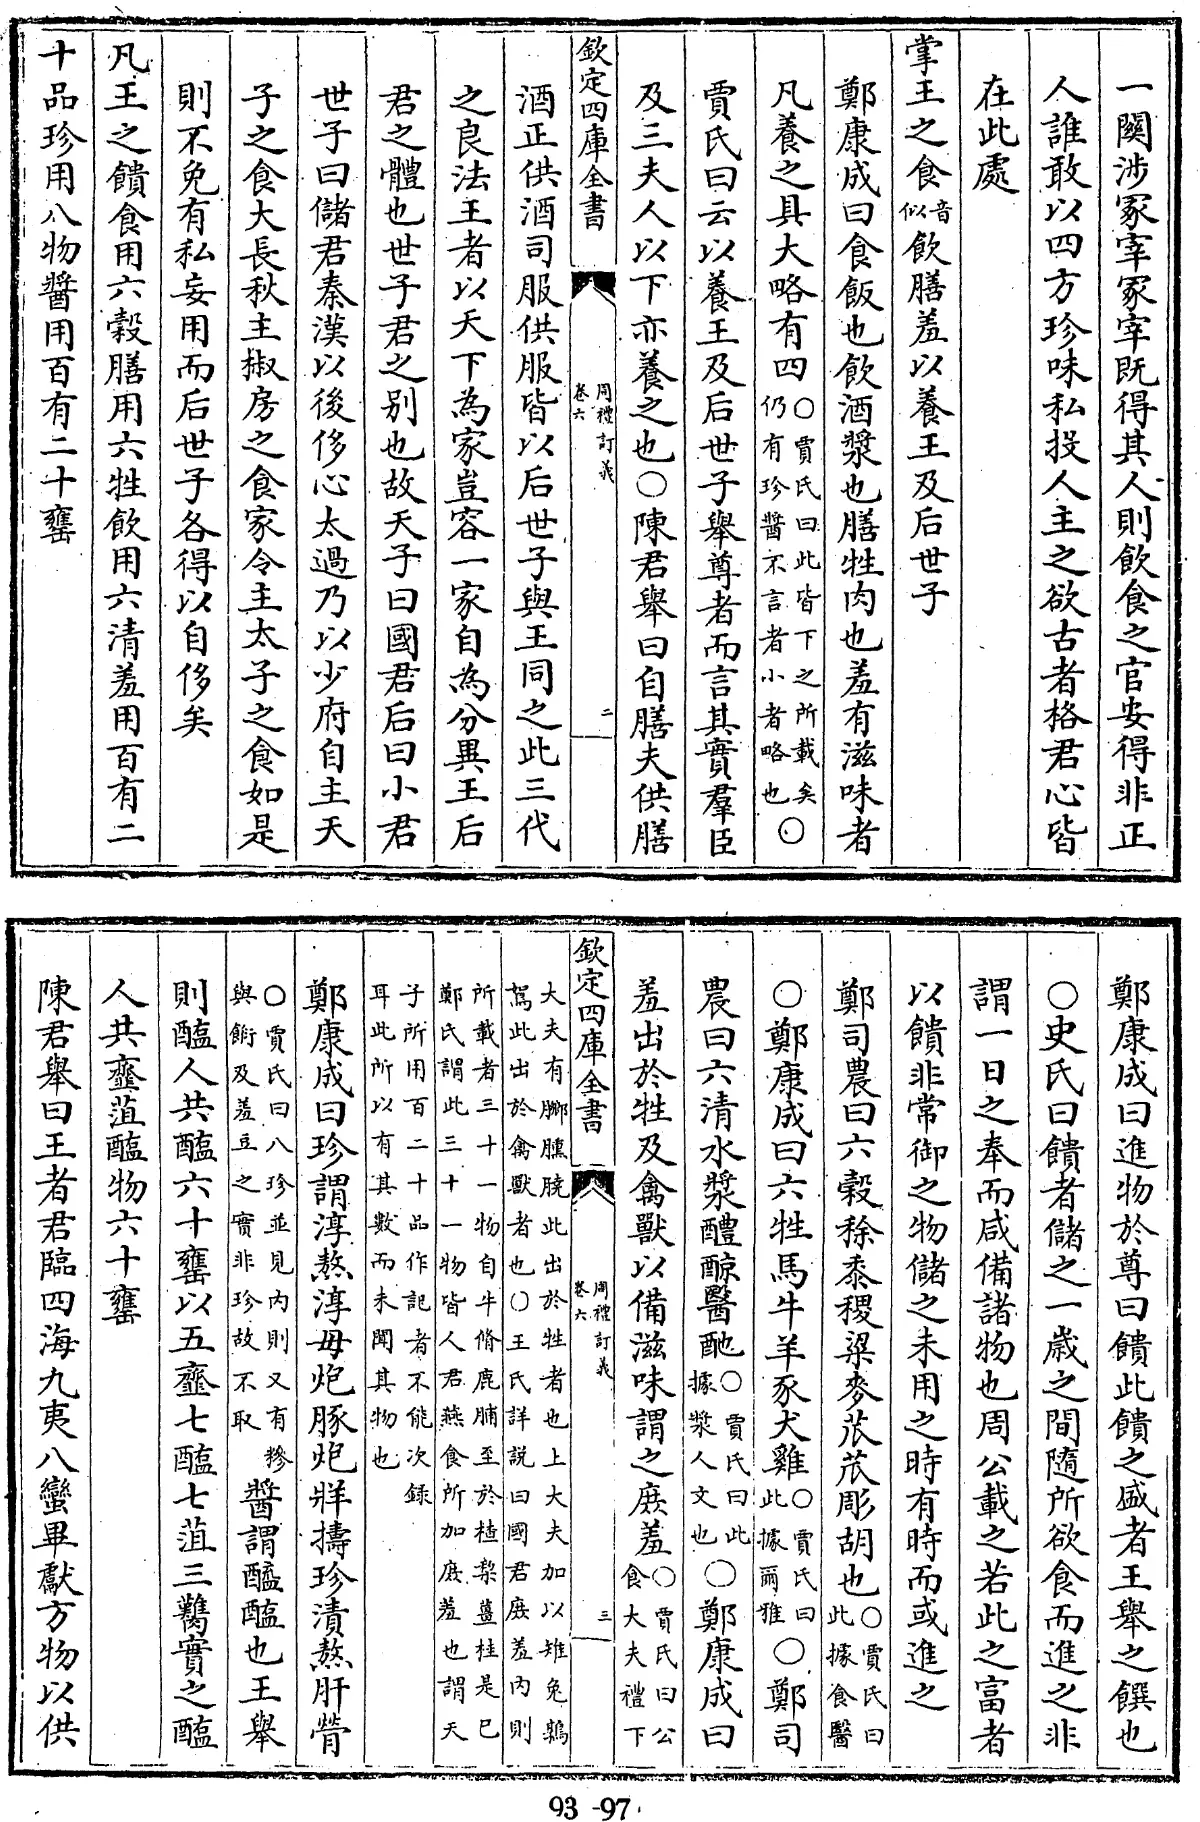 一闗涉冢宰冢宰既得其人則飲食之官安得非正
人誰敢以四方珍味私投人主之欲古者格君心皆
在此處
掌王之食音似飲膳羞以養王及后世子
鄭康成曰食飯也飲酒漿也膳牲肉也羞有滋味者
凡養之具大略有四○賈氏曰此皆下之所載矣仍有珍醤不言者小者略也○
賈氏曰云以養王及后世子舉尊者而言其實羣臣
及三夫人以下亦養之也○陳君舉曰自膳夫供膳
欽定四庫全書 周禮訂義 卷六 二
酒正供酒司服供服皆以后世子與王同之此三代
之良法王者以天下為家豈容一家自為分異王后
君之體也世子君之别也故天子曰國君后曰小君
世子曰儲君秦漢以後侈心太過乃以少府自主天
子之食大長秋主椒房之食家令主太子之食如是
則不免有私妄用而后世子各得以自侈矣
凡王之饋食用六穀膳用六牲飲用六清羞用百有二
十品珍用八物醤用百有二十罋
鄭康成曰進物於尊曰饋此饋之盛者王舉之饌也
○史氏曰饋者儲之一歲之間隨所欲食而進之非
謂一日之奉而咸備諸物也周公載之若此之富者
以饋非常御之物儲之未用之時有時而或進之
鄭司農曰六穀稌黍稷粱麥苽苽彫胡也○賈氏曰此據食醫
○鄭康成曰六牲馬牛羊豕犬雞○賈氏曰此據爾雅○鄭司
農曰六清水漿醴醇醫酏○賈氏曰此據漿人文也○鄭康成曰
羞出於牲及禽獸以備滋味謂之庶羞○賈氏曰公食大夫禮下
欽定四庫全書 周禮訂義 卷六 三
大夫有膷臐膮此出於牲者也上大夫加以雉兔鶉
鴽此出於禽獸者也○王氏詳説曰國君庶羞内則
所載者三十一物自牛脩鹿脯至於楂梨薑桂是已
鄭氏謂此三十一物皆人君燕食所加庶羞也謂天
子所用百二十品作記者不能次録
耳此所以有其數而未聞其物也
鄭康成曰珍謂淳熬淳毋炮豚炮牂擣珍漬熬肝膋
○賈氏曰八珍並見内則又有糝與餰及羞豆之實非珍故不取醤謂醯醢也王舉
則醢人共醢六十罋以五齏七醢七菹三臡實之醯
人共齏菹醯物六十罋
陳君舉曰王者君臨四海九夷八蠻畢獻方物以供
93-97